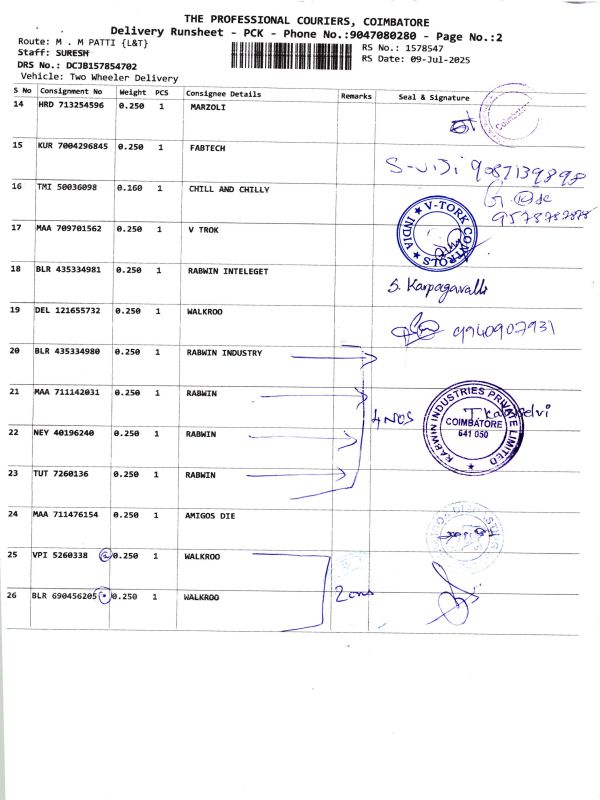 THE PROFESSIONAL COURIERS, COIMBATORE
Delivery Runsheet - PCK - Phone No.:9047080280 - Page No.:2
Route: M . M PATTI {L&T}
RS No.: 1578547
Staff: SURESH
RS Date: 09-Jul-2025
DRS No.: DCJB157854702
Vehicle: Two Wheeler Delivery
S No Consignment No Weight PCS Consignee Details Remarks Seal & Signature
14 HRD 713254596 0.250 1 MARZOLI
Coimbatore
15 KUR 7004296845 0.250 1 FABTECH
9087139898
16 TMI 50036098 0.160 1 CHILL AND CHILLY
9578782878
17 MAA 709701562 0.250 1 V TROK
★ V-TORK CONTROLS ★ INDIA
18 BLR 435334981 0.250 1 RABWIN INTELEGET
S. Karpagavalli
19 DEL 121655732 0.250 1 WALKROO
9940907931
20 BLR 435334980 0.250 1 RABWIN INDUSTRY
21 MAA 711142031 0.250 1 RABWIN
4 NOS
RABWIN INDUSTRIES PRIVATE LIMITED ★
COIMBATORE
641 050
22 NEY 40196240 0.250 1 RABWIN
23 TUT 7260136 0.250 1 RABWIN
24 MAA 711476154 0.250 1 AMIGOS DIE
25 VPI 5260338 0.250 1 WALKROO
26 BLR 690456205 0.250 1 WALKROO